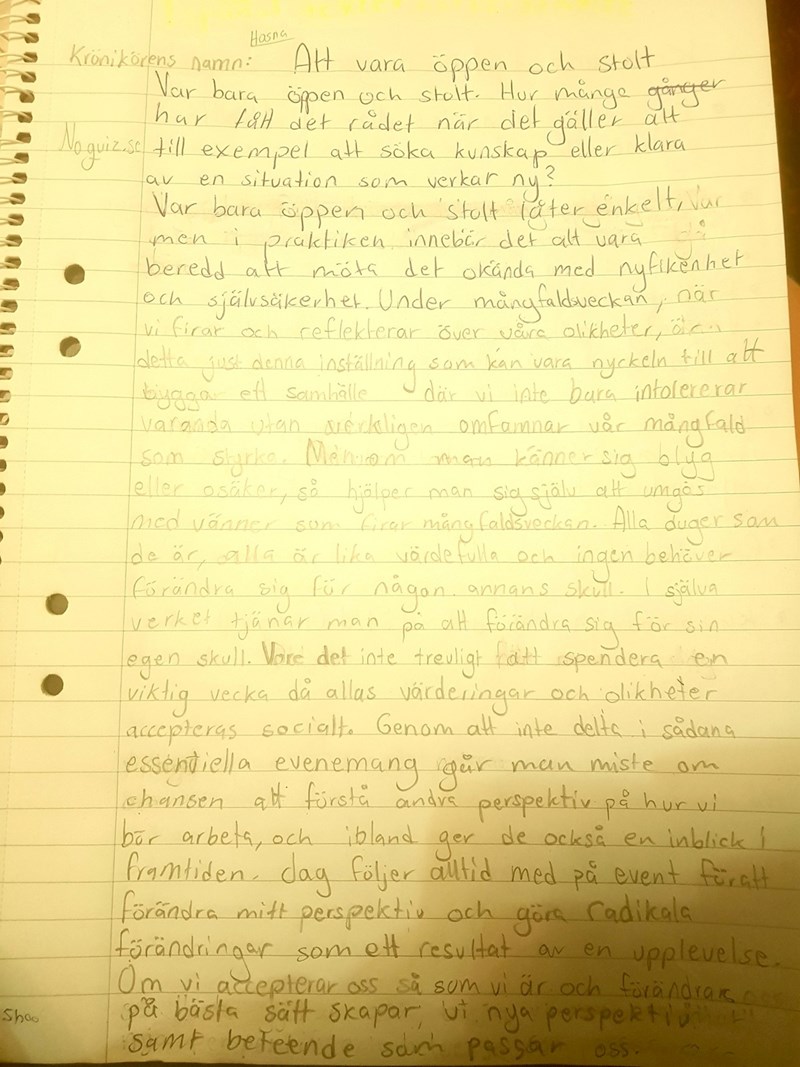 Hasna
Krönikörens namn: Att vara öppen och stolt
Var bara öppen och stolt. Hur många gånger
har fått det rådet när det gäller att
Noquiz.se till exempel att söka kunskap eller klara
av en situation som verkar ny?
Var bara öppen och stolt låter enkelt, var
men i praktiken innebär det att vara
beredd att möta det okända med nyfikenhet
och självsäkerhet. Under mångfaldsveckan, när
vi firar och reflekterar över våra olikheter, är
detta just denna inställning som kan vara nyckeln till att
bygga ett samhälle där vi inte bara intolererar
varanda utan verkligen omfamnar vår mångfald
som styrka. Men om man känner sig blyg
eller osäker, så hjälper man sig själv att umgås
med vänner som firar mångfaldsveckan. Alla duger som
de är, alla är lika värdefulla och ingen behöver
förändra sig för någon annans skull. I själva
verket tjänar man på att förändra sig för sin
egen skull. Vore det inte trevligt att spendera en
viktig vecka då allas värderingar och olikheter
accepteras socialt. Genom att inte delta i sådana
essentiella evenemang går man miste om
chansen att förstå andra perspektiv på hur vi
bör arbeta, och ibland ger de också en inblick i
framtiden. Jag följer alltid med på event för att
förändra mitt perspektiv och göra radikala
förändringar som ett resultat av en upplevelse.
Om vi accepterar oss så som vi är och förändras
på bästa sätt skapar vi nya perspektiv
samt beteende som passar oss.